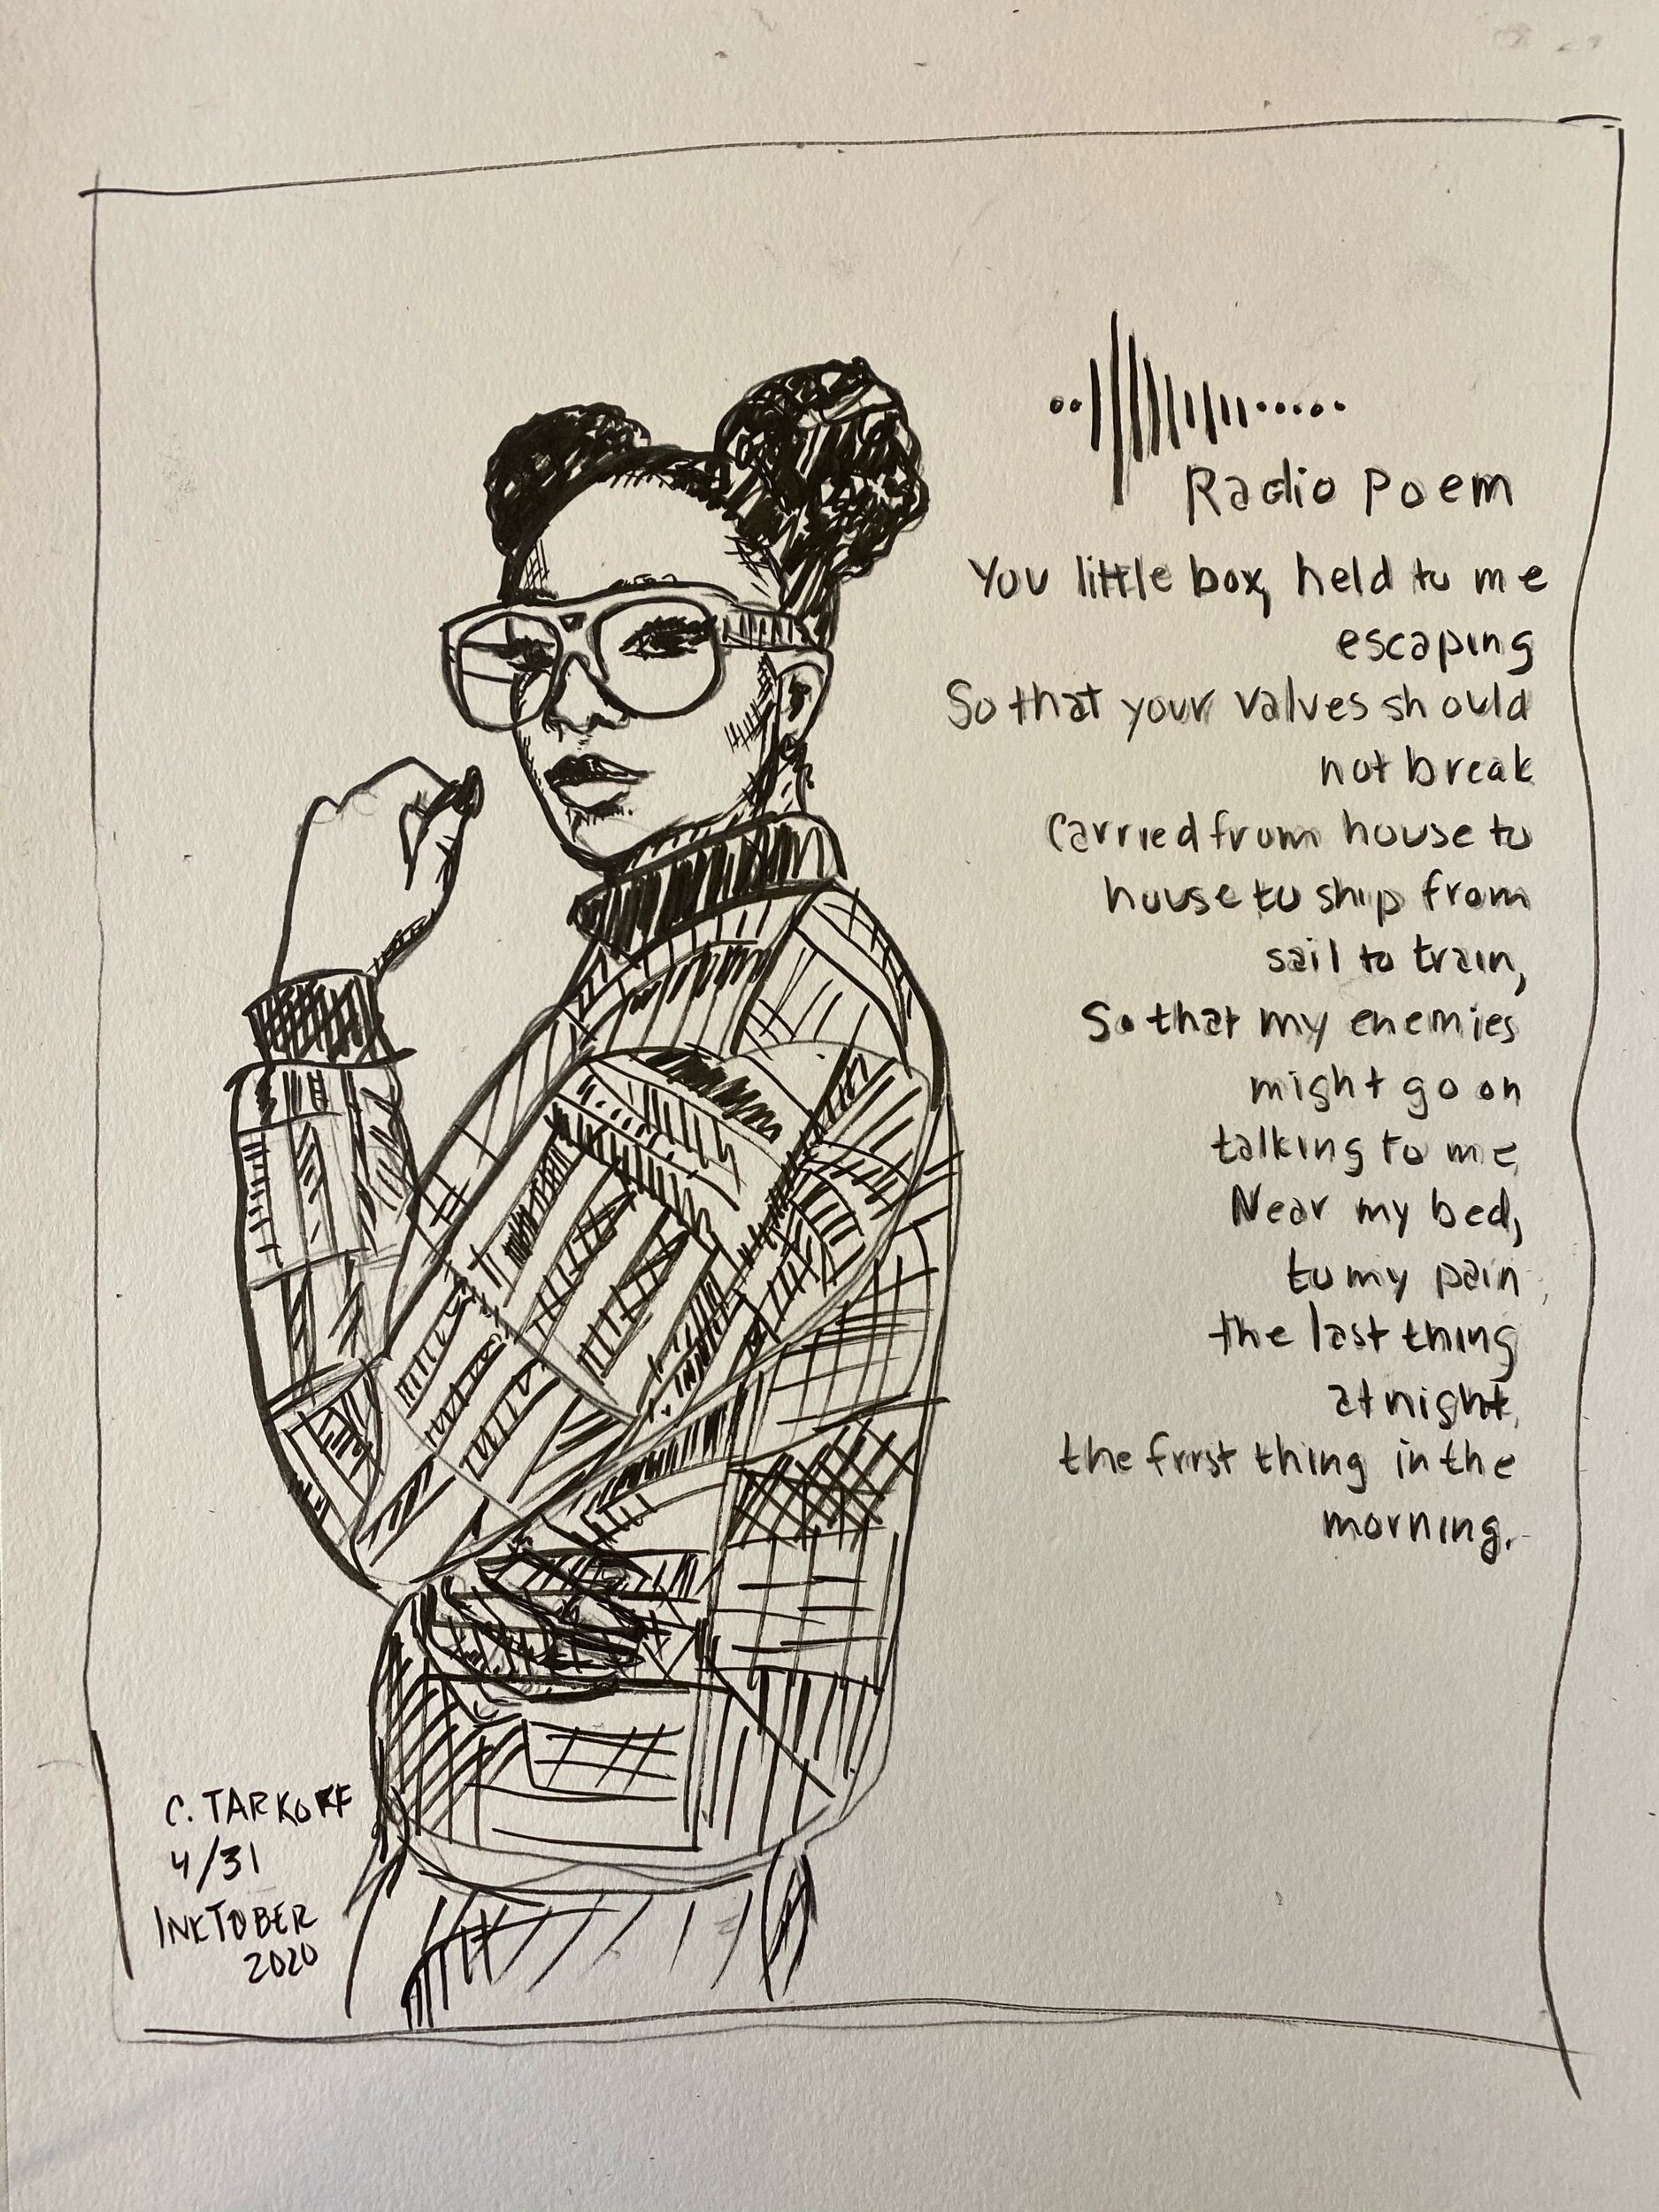 Radio Poem
You little box, held to me
escaping
So that your valves should
not break
Carried from house to
house to ship from
sail to train,
So that my enemies
might go on
talking to me,
Near my bed,
to my pain,
the last thing
at night,
the frrst thing in the
morning.
C. TARKOFF
4/31
INKTOBER
2020